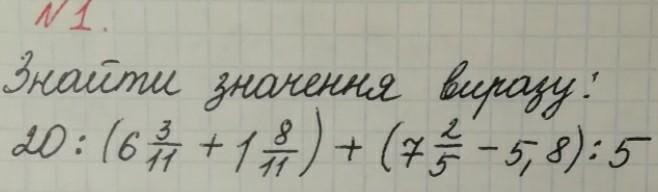 N 1.
Знайти значення виразу:
20 : (6 3/11 + 1 8/11) + (7 2/5 - 5,8) : 5